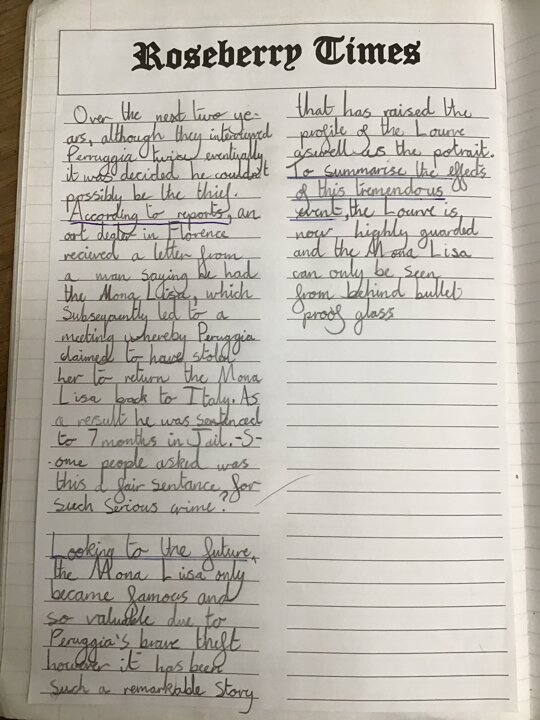 Roseberry Times
Over the next two ye-
ars, although they interviewed
Perruggia twice eventually
it was decided he couldn't
possibly be the thief.
According to reports, an
art dealer in Florence
recieved a letter from
a man saying he had
the Mona Lisa, which
Subsequently led to a
meeting whereby Peruggia
claimed to have stolen
her to return the Mona
Lisa back to Italy. As
a result he was sentenced
to 7 months in Jail. -S-
ome people asked was
this a fair sentance for
such serious crime?
Looking to the future,
the Mona Lisa only
became famous and
so valuable due to
Peruggia's brave theft
however it has been
such a remarkable story
that has raised the
profile of the Lourve
aswell as the potrait.
To summarise the effects
of this tremendous
event, the Lourve is
now highly guarded
and the Mona Lisa
can only be seen
from behind bullet
proof glass